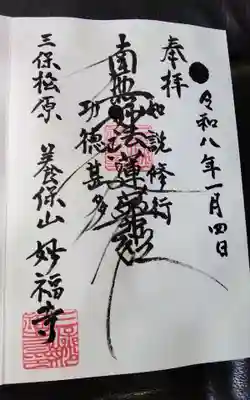 令和八年一月四日
奉拝
如説修行
南無妙法蓮華経
功徳甚多
三保松原
養保山 妙福寺